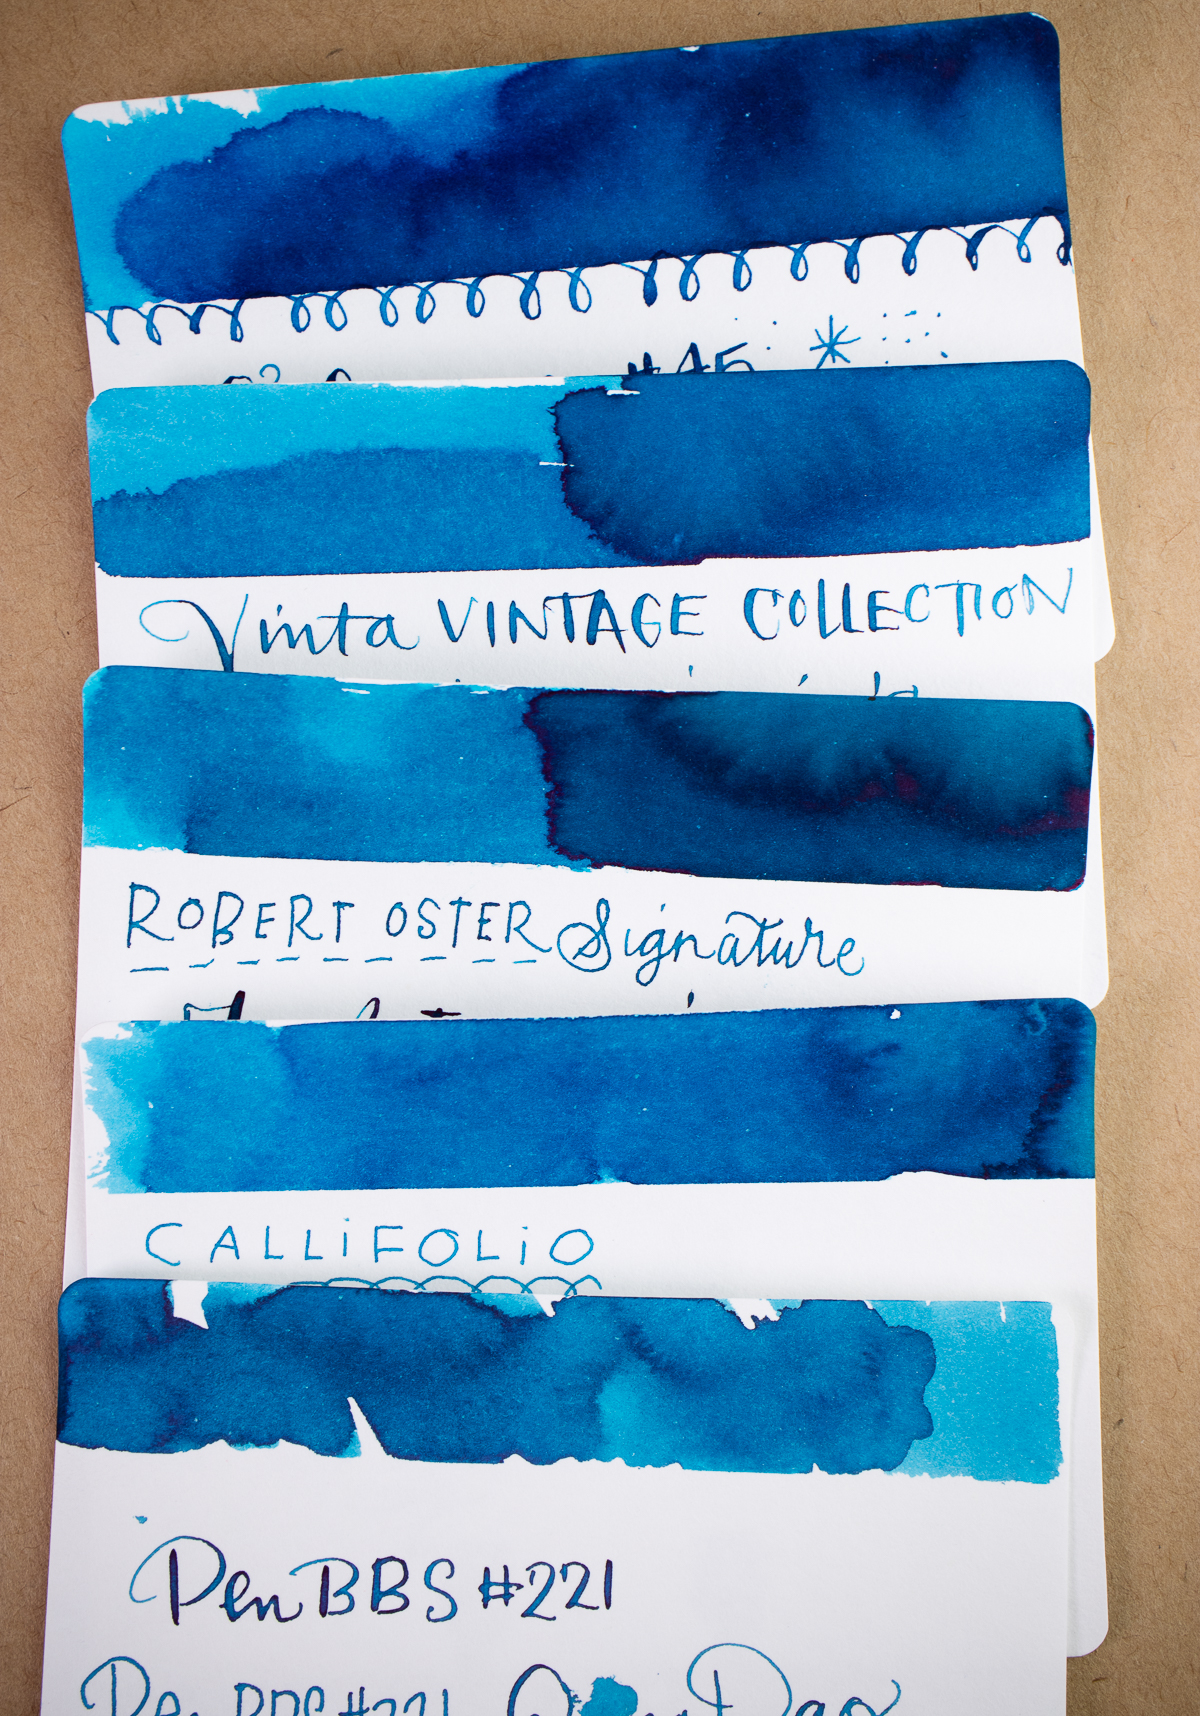 #45
Vinta VINTAGE COLLECTION
ROBERT OSTER Signature
CALLiFOLiO
PenBBS #221
PenBBS #221